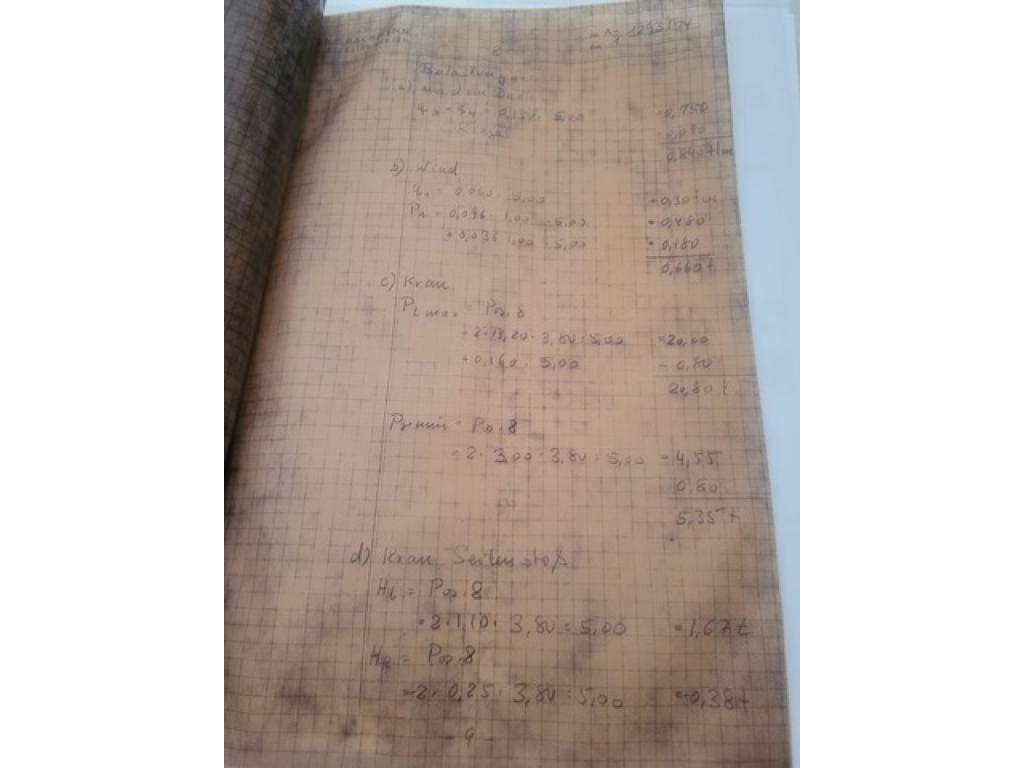 1293/74
Belastungen
a)
= 0,150 · 5,00 = 0,750
0,090
0,840 t/m
b) Wind
= 0,060 · 5,00 = 0,30 t/m
= 0,096 · 1,00 · 5,00 = 0,480
+ 0,036 · 5,00 = 0,180
0,660 t
c) Kran
Pl max = Pos. 8
= 2 · 13,20 · 3,80 : 5,00 = 20,00
+ 0,160 · 5,00 = 0,80
20,80 t
Pr min = Pos. 8
= 2 · 3,00 · 3,80 : 5,00 = 4,55
0,80
5,35 t
d) Kran Seitenstoß
Hl = Pos. 8
= 2 · 1,10 · 3,80 : 5,00 = 1,67 t
HR = Pos. 8
= 2 · 0,25 · 3,80 : 5,00 = 0,38 t
- 9 -